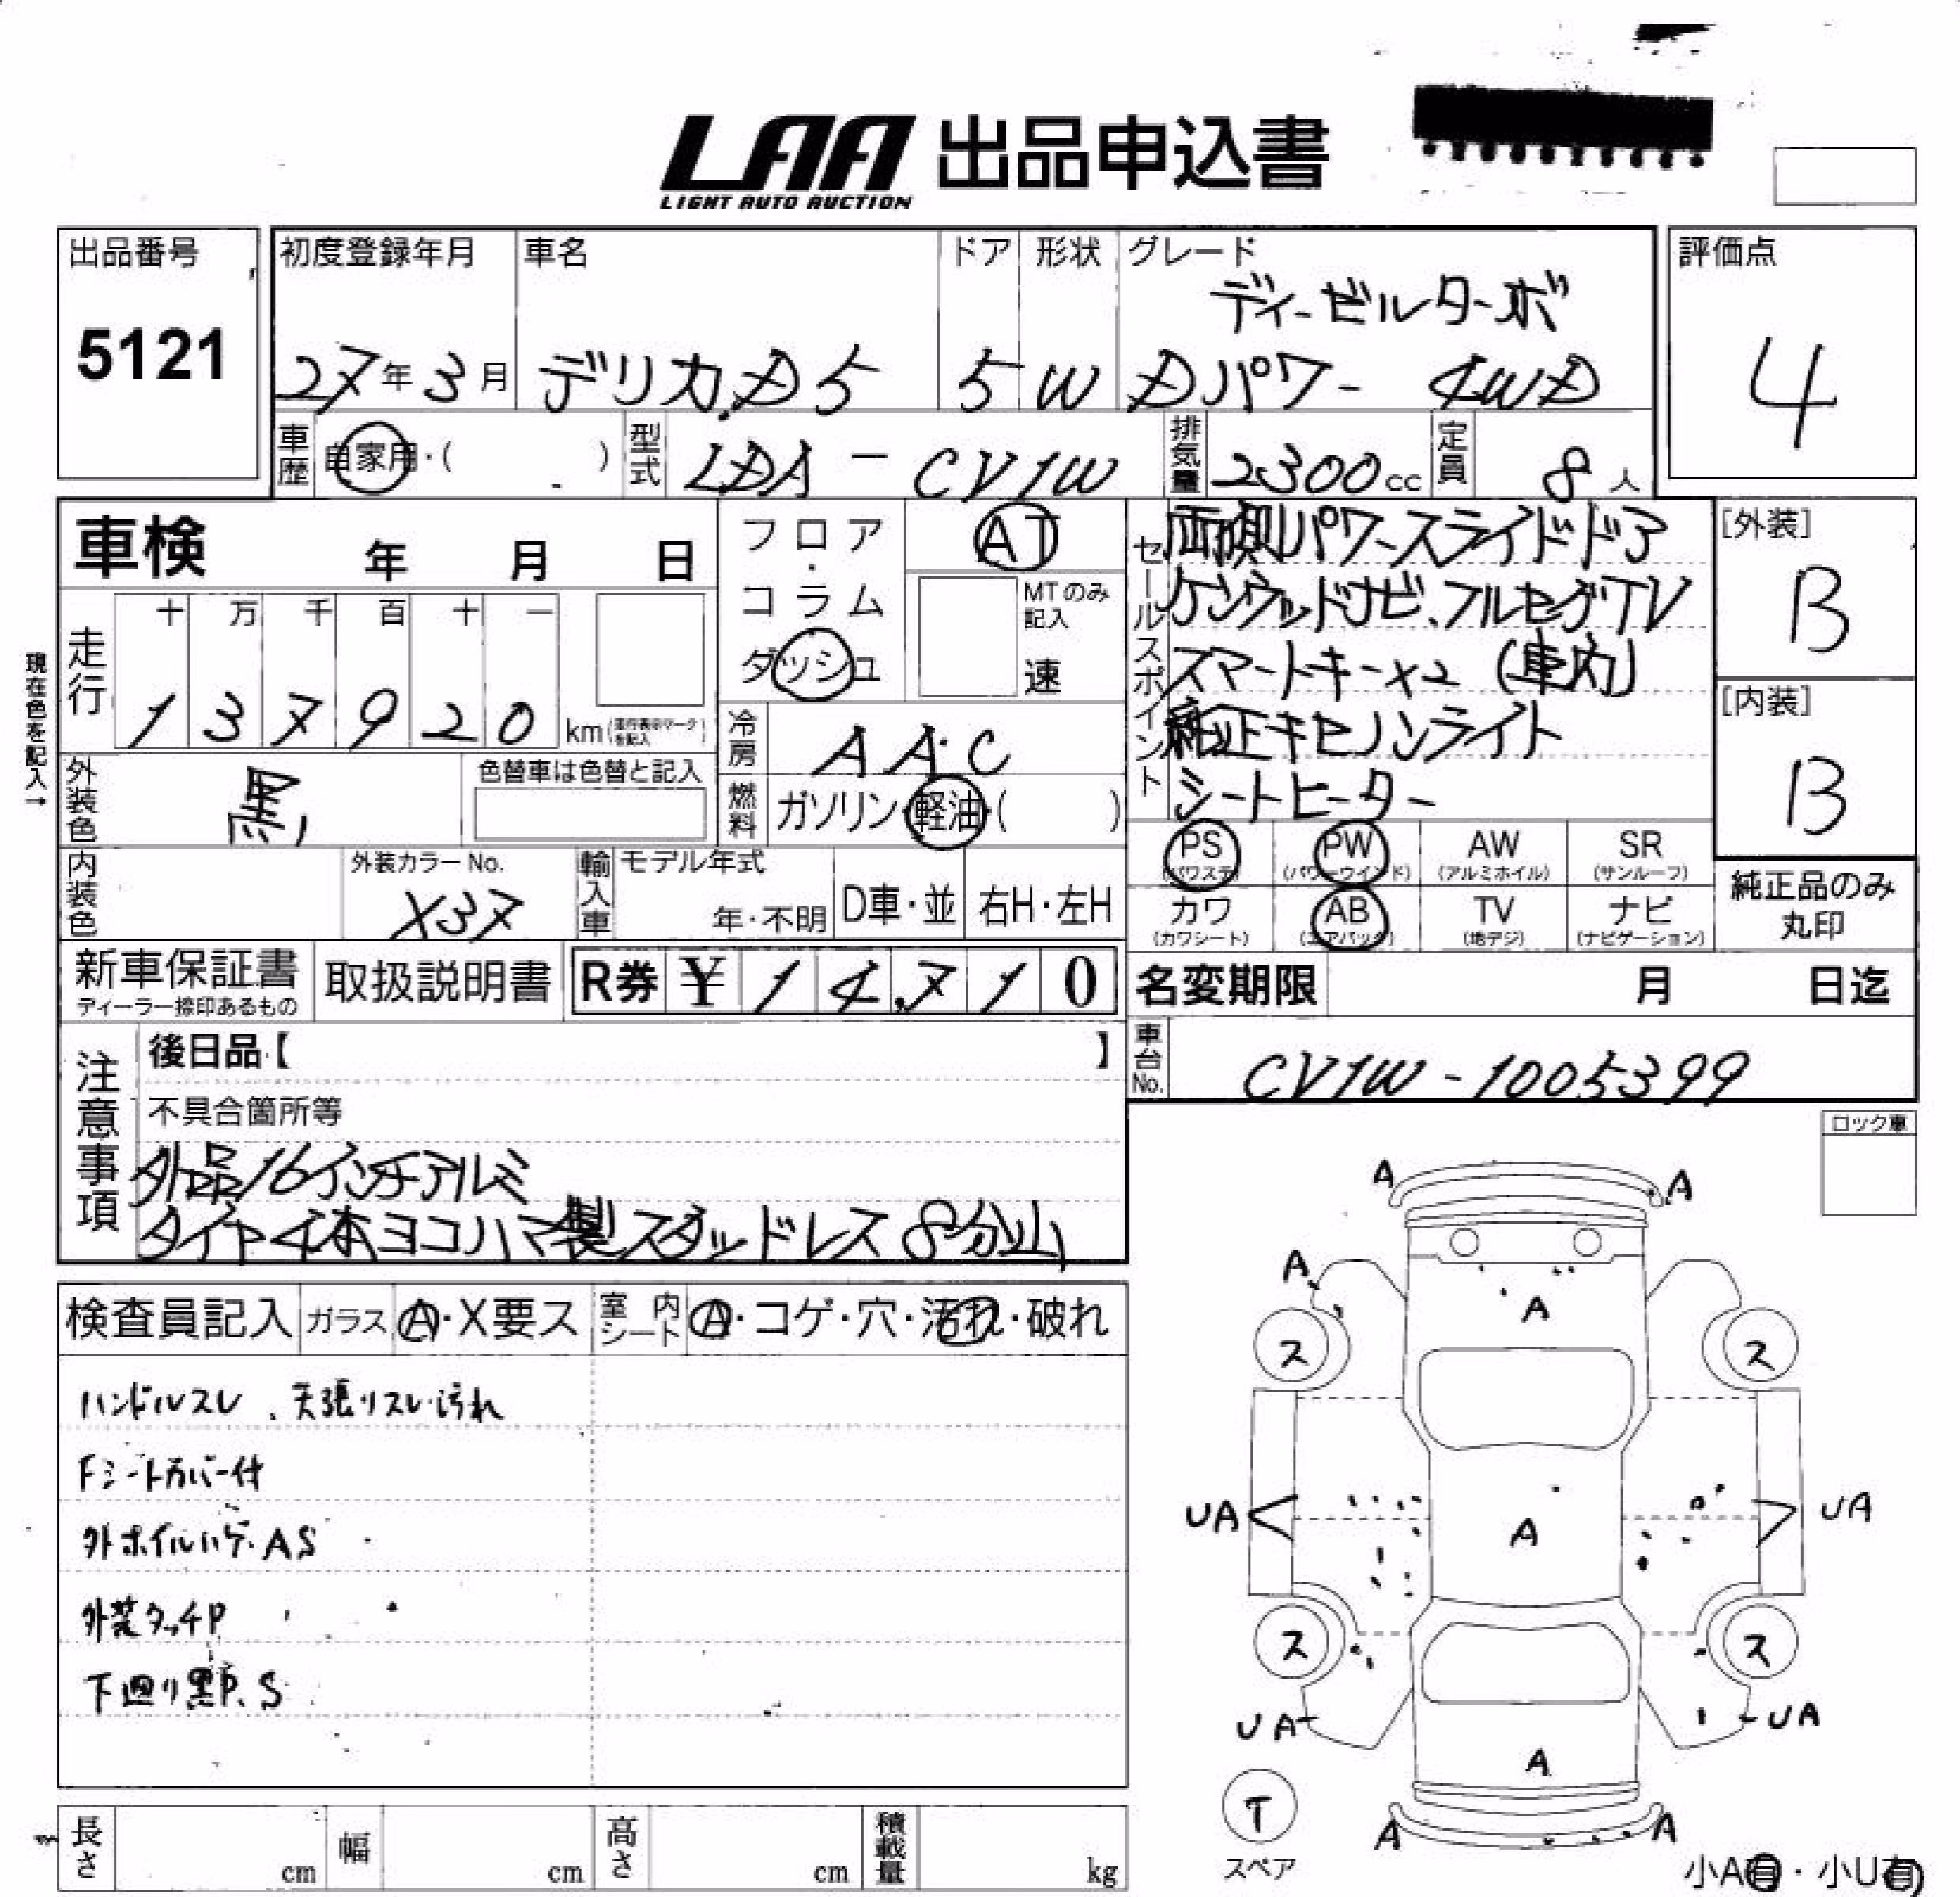 LAA 出品申込書
LIGHT AUTO AUCTION
出品番号
5121
初度登録年月
27年3月
車名
デリカ.D5
ドア
5
形状
W
グレード
ディーゼルターボ
Dパワー 4WD
評価点
4
車歴
自家用・( )
型式
LDA - CV1W
排気量
2300cc
定員
8人
車検 年 月 日
フロア・コラム
ダッシュ
AT
MTのみ記入
速
セールスポイント
両側パワースライドドア
ケンウッドナビ、フルセグTV
スマートキー×2 (車内)
純正キセノンライト
シートヒーター
[外装]
B
[内装]
B
現在色を記入→
走行
十 万 千 百 十 一
1 3 7 9 2 0 km(走行表示マークを記入)
冷房
AAC
外装色
黒
色替車は色替と記入
燃料
ガソリン・軽油・( )
PS (パワステ)
PW (パワーウインド)
AW (アルミホイル)
SR (サンルーフ)
カワ (カワシート)
AB (エアバック)
TV (地デジ)
ナビ (ナビゲーション)
純正品のみ丸印
内装色
外装カラーNo.
X37
輸入車
モデル年式
年・不明
D車・並
右H・左H
新車保証書
ディーラー捺印あるもの
取扱説明書
R券 ¥14,710
名変期限 月 日迄
車台No.
CV1W-1005399
注意事項
後日品【 】
不具合箇所等
外品16インチアルミ
タイヤ4本ヨコハマ製スタッドレス8分山
ロック車
検査員記入
ガラス
A・X要ス
室内シート
A・コゲ・穴・汚れ・破れ
ハンドルスレ、天張りスレ・汚れ
Fシートカバー付
外ホイルハゲ・AS
外装タッチP
下廻り黒P、S
A
A
A
A
ス
ス
UA
A
UA
ス
ス
UA
UA
A
T
スペア
A
A
小A有・小U有
長さ cm
幅 cm
高さ cm
積載量 kg